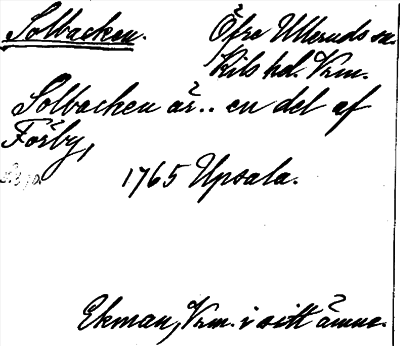 Solbacken. Öfre Ulleruds sn.
Kils hd. Vrm.
Solbacken är.. en del af
Förby,
1765 Upsala.
Ekman, Vrm. i sitt ämne.